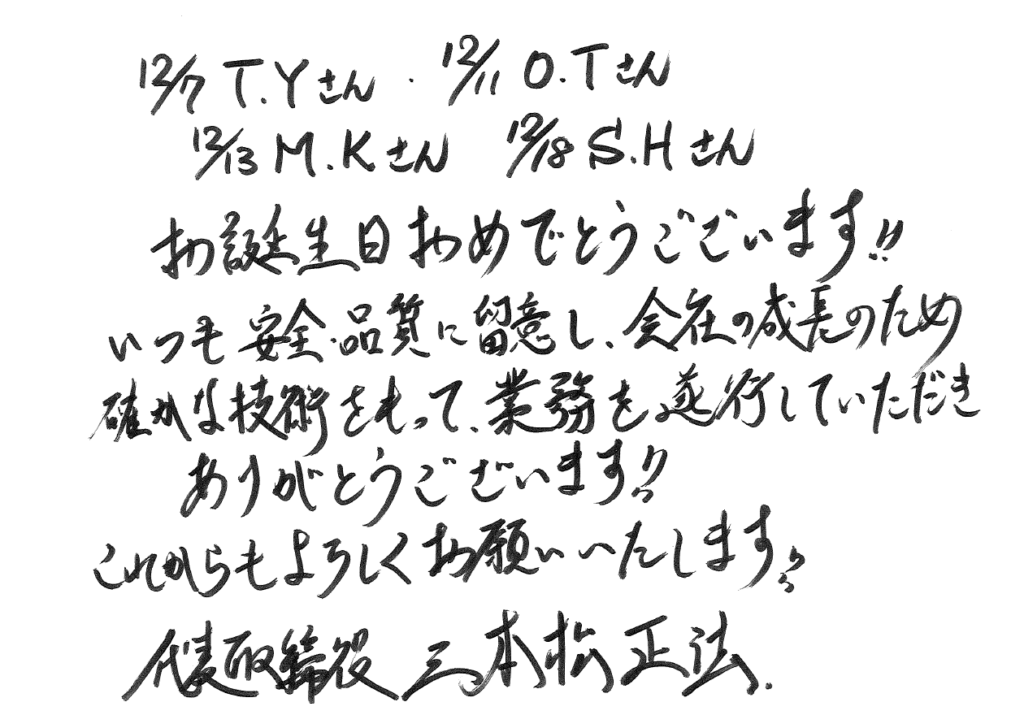 12/7 T.Yさん ・ 12/11 O.Tさん
12/13 M.Kさん 12/18 S.Hさん
お誕生日おめでとうございます!!
いつも安全・品質に留意し、会社の成長のため
確かな技術をもって、業務を遂行していただき
ありがとうございます!!
これからもよろしくお願いいたします!!
代表取締役 三本松 正法.